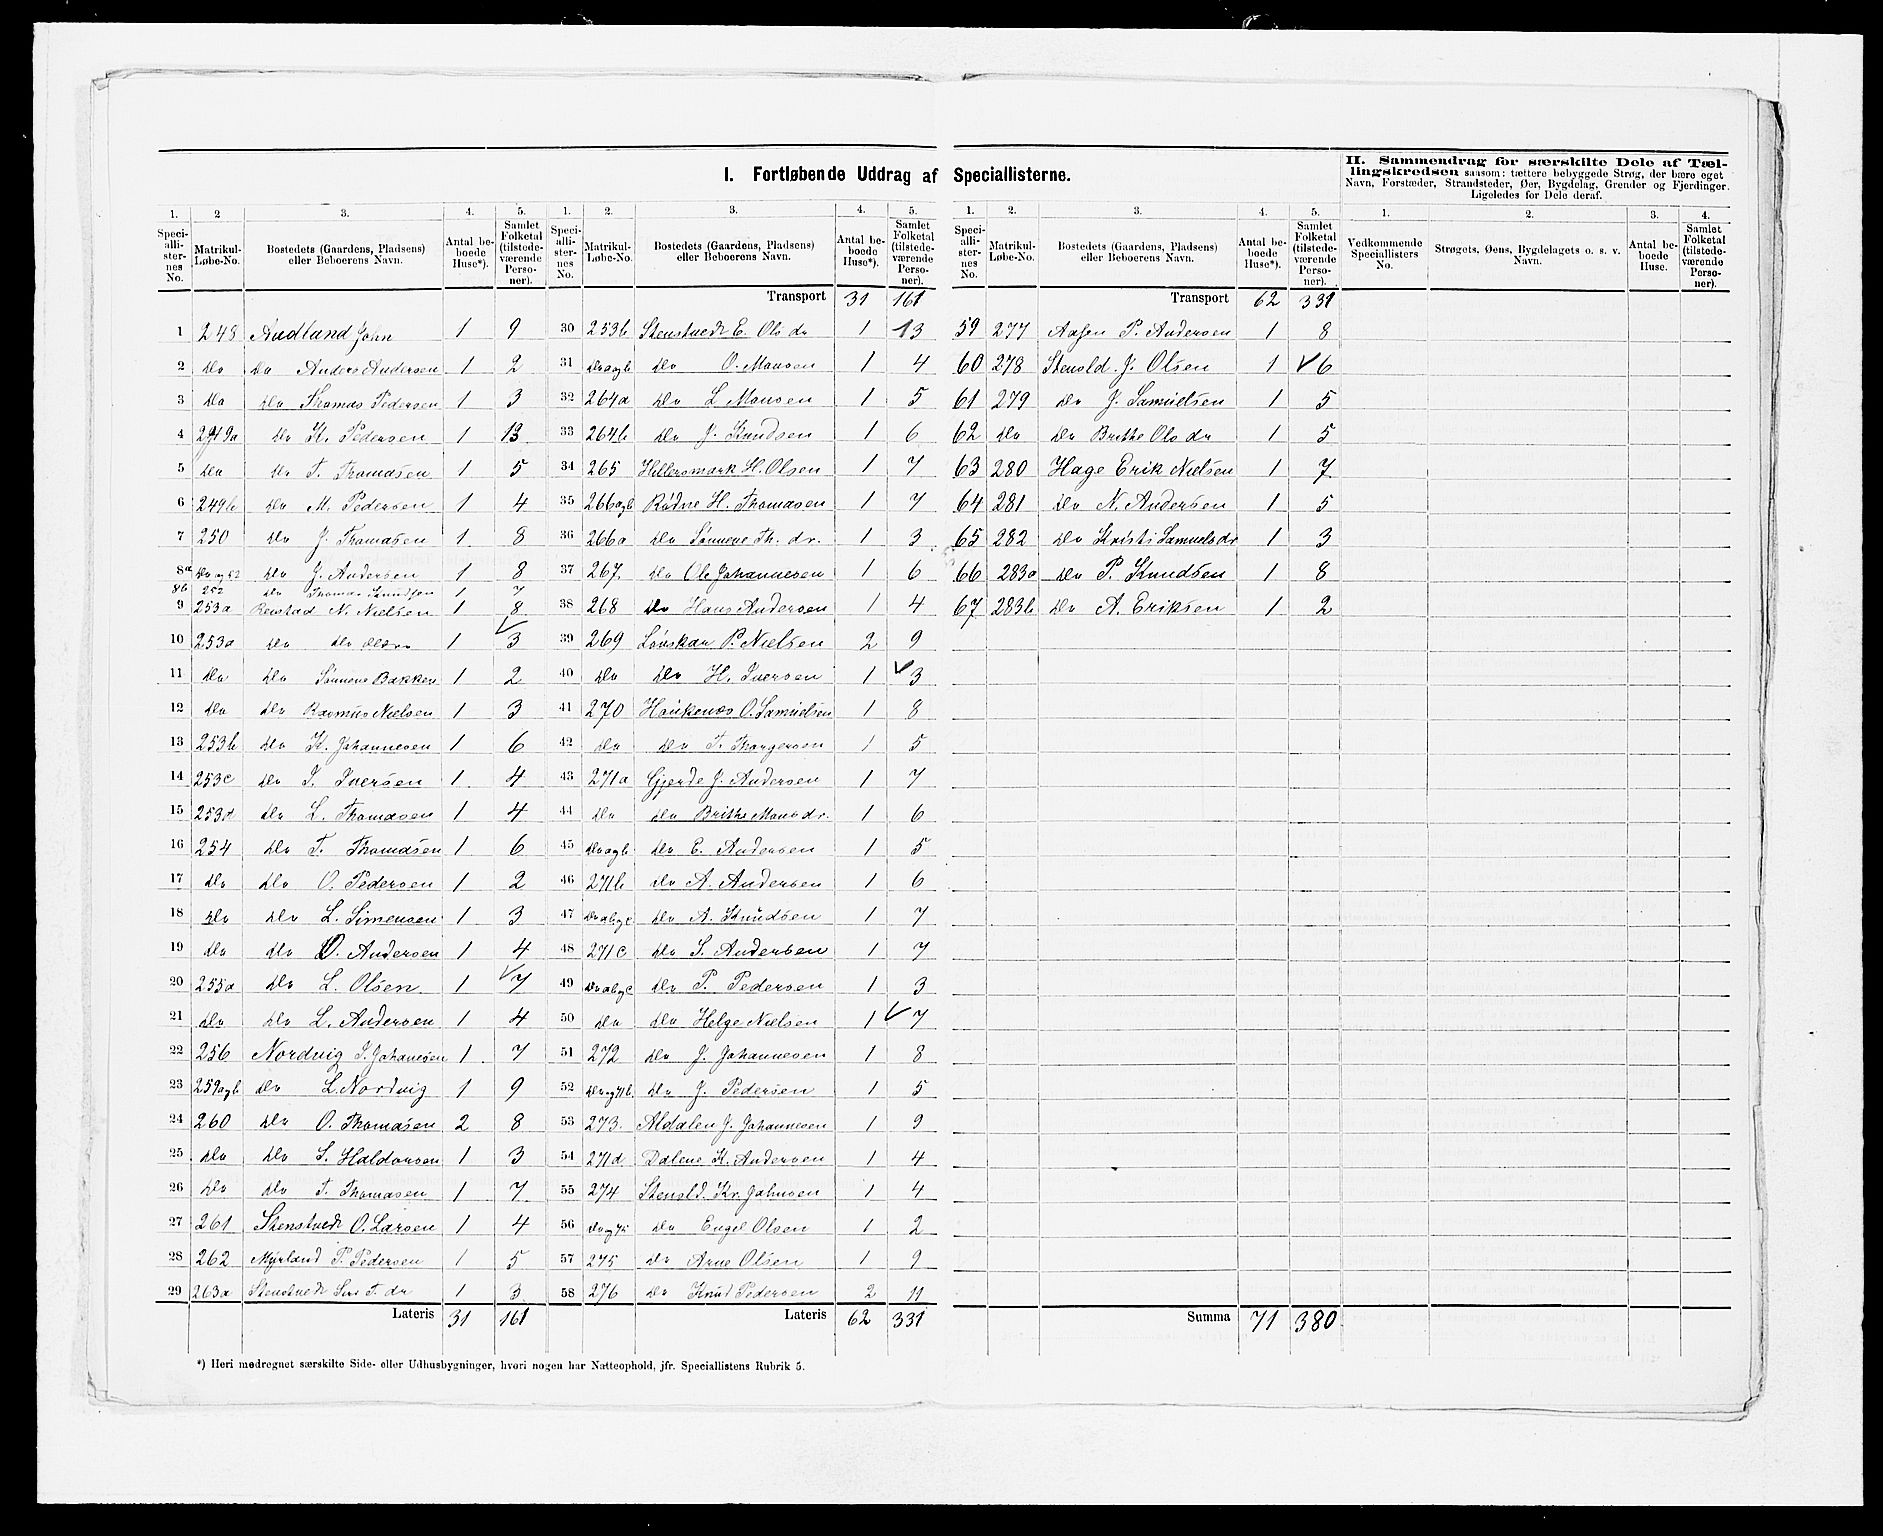 I. Fortløbende Uddrag af Speciallisterne.
II. Sammendrag for særskilte Dele af Tællingskredsen saasom: tættere bebyggede Strøg, der bære eget
Navn, Forstæder, Strandsteder, Øer, Bygdelag, Grender og Fjerdinger.
Ligeledes for Dele deraf.
1. 2 3. 4. 5. 1. 2. 3. 4. 5. 1. 2. 3. 4. 5. 1. 2. 3. 4.
Speciallisternes No. Matrikul-Løbe-No. Bostedets (Gaardens, Pladsens) eller Beboerens Navn. Antal beboede Huse*). Samlet Folketal (tilstedeværende Personer).
Speciallisternes No. Matrikul-Løbe-No. Bostedets (Gaardens, Pladsens) eller Beboerens Navn. Antal beboede Huse*). Samlet Folketal (tilstedeværende Personer).
Speciallisternes No. Matrikul-Løbe-No. Bostedets (Gaardens, Pladsens) eller Beboerens Navn. Antal beboede Huse*). Samlet Folketal (tilstedeværende Personer).
Vedkommende Speciallisters No. Strøgets, Øens, Bygdelagets o. s. v. Navn. Antal beboede Huse. Samlet Folketal (tilstedeværende Personer).
1 248 Audland John 1 9
2 do do Anders Andersen 1 2
3 do do Thomas Pedersen 1 3
4 249a do K. Pedersen 1 13
5 do do T. Thomasen 1 5
6 249b do M. Pedersen 1 4
7 250 do J. Thomasen 1 8
8a do og 52 do J. Andersen 1 8
8b 252 do Thomas Knudsen 1 7
9 253a Renstad N. Nielsen 1 8
10 253a do do 1 3
11 do do Sønneve Bakken 1 2
12 do do Rasmus Nielsen 1 3
13 253b do K. Johannesen 1 6
14 253c do I. Iversen 1 4
15 253d do L. Thomasen 1 4
16 254 do T. Thomasen 1 6
17 do do O. Pedersen 1 2
18 do do L. Simensen 1 3
19 do do O. Andersen 1 4
20 255a do L. Olsen 1 7
21 do do L. Andersen 1 4
22 256 Nordvig I. Johanesen 1 7
23 259a og b do L. Nordvig 1 9
24 260 do O. Thomasen 2 8
25 do do S. Haldorsen 1 3
26 do do T. Thomasen 1 7
27 261 Stenstvedt O. Larsen 1 4
28 262 Myrland P. Pedersen 1 5
29 263a Stenstvedt Siri T. dr 1 3
Lateris 31 161
Transport 31 161
30 253b Stenstvedt E. Ols dr 1 13
31 do a og b do O. Monsen 1 4
32 264a do L Monsen 1 5
33 264b do J. Knudsen 1 6
34 265 Hellersmark H. Olsen 1 7
35 266a og b Rødne H. Thomasen 1 7
36 266a do Sønneve Th. dr. 1 3
37 267. do Ole Johannesen 1 6
38 268 do Hans Andersen 1 4
39 269 Lønskar P. Nielsen 2 9
40 do do H. Iversen 1 3
41 270 Haukenæs O. Samuelsen 1 8
42 do do T. Thorgersen 1 5
43 271a Gjerde J. Andersen 1 7
44 do do Brithe Mons dr. 1 6
45 do a og b do E. Andersen 1 5
46 271b do A. Andersen 1 6
47 do ab og c do A. Knudsen 1 7
48 271c do S. Andersen 1 7
49 do ab og c do P. Pedersen 1 3
50 do do Helge Nielsen 1 7
51 272 do J. Johannesen 1 8
52 do og 71b do J. Pedersen 1 5
53 273. Aldalen J. Johannesen 1 9
54 271d Dalene K. Andersen 1 4
55 274 Stensld. Kr. Johnsen 1 4
56 do og 75 do Engel Olsen 1 2
57 275 do Arne Olsen 1 9
58 276 do Knud Pedersen 2 11
Lateris 62 331
Transport 62 331
59 277 P. Andersen 1 8
60 278 Stensld. J. Olsen 1 6
61 279 do J. Samuelsen 1 5
62 do do Brithe Ols dr 1 5
63 280 Hage Erik Nielsen 1 7
64 281 do N. Andersen 1 5
65 282 do Kristi Samuelsdr 1 3
66 283a do P. Knudsen 1 8
67 283b do A. Eriksen 1 2
Summa 71 380
*) Heri medregnet særskilte Side- eller Udhusbygninger, hvori nogen har Natteophold, jfr. Speciallistens Rubrik 5.